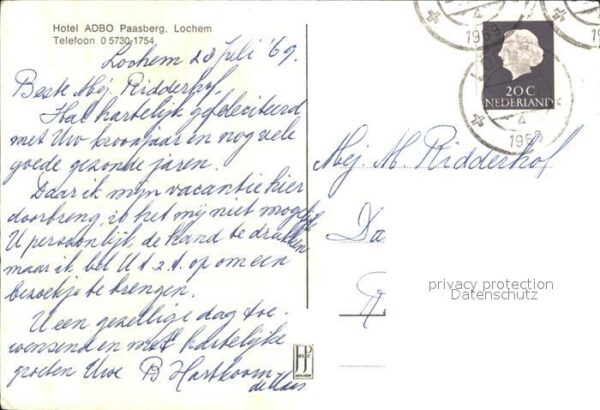 Hotel ADBO Paasberg, Lochem
Telefoon 0 5730-1754
Lochem 28 Juli '69.
Beste Mej. Ridderhof,
Hal hartelijk gefeliciteerd
met Uw kroonjaar en nog vele
goede gezonde jaren.
Daar ik mijn vacantie hier
doorbreng, is het mij niet mogelijk
U persoonlijk de hand te drukken
maar ik bel U t.z.t. op om een
bezoekje te brengen.
U een gezellige dag toe-
wensend en met hartelijke
groeten Uwe B. Hartkoorn-
de Haas
1969
20 C
NEDERLAND
4
1969
Mej. M. Ridderhof
Da
privacy protection
Datenschutz